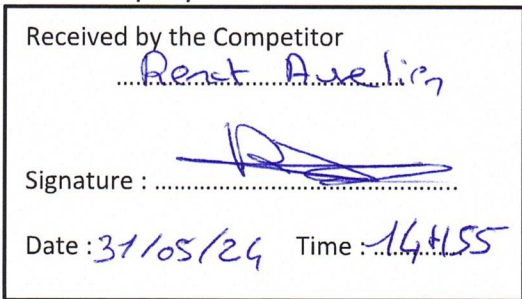 Received by the Competitor
Renct Aurelien
Signature :
Date : 31/05/24 Time : 14H55